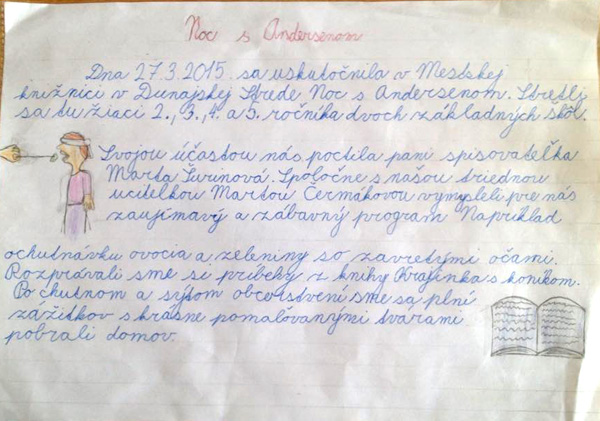 Noc s Andersenom
Dňa 27.3.2015 sa uskutočnila v Mestskej
knižnici v Dunajskej Strede Noc s Andersenom. Stretli
sa tu žiaci 2., 3., 4. a 5. ročníka dvoch základných škôl.
Svojou účasťou nás poctila pani spisovateľka
Marta Šurinová. Spoločne s našou triednou
učitelkou Martou Čermákovou vymysleli pre nás
zaujímavý a zábavný program. Napríklad
ochutnávku ovocia a zeleniny so zavretými očami.
Rozprávali sme si príbehy z knihy Krajinka s koníkom.
Po chutnom a sýtom občerstvení sme sa plní
zážitkov s krásne pomaľovanými tvárami
pobrali domov.